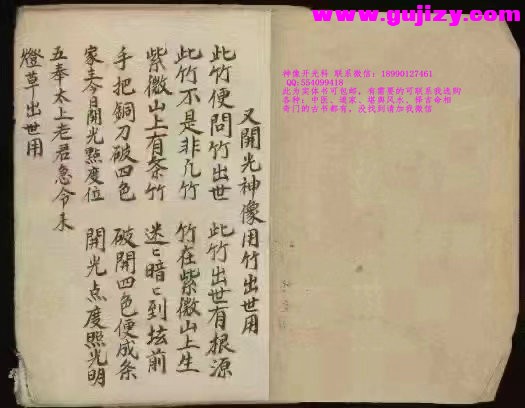 www.gujizy.com
神像开光科 联系微信：18990127461
QQ:554099418
此为实体书可包邮，有需要的可联系我选购
各种：中医、道家、堪舆风水、择吉命相
奇门的古书都有，没找到请加我微信
又開光神像用竹出世用
此竹便問竹出世 此竹出世有根源
此竹不是非凡竹 竹在紫微山上生
紫微山上有条竹 迷〻暗〻到坛前
手把銅刀破四色 破開四色便成条
家主今日開光點度位 開光点度照光明
五奉太上老君急令来
燈草出世用